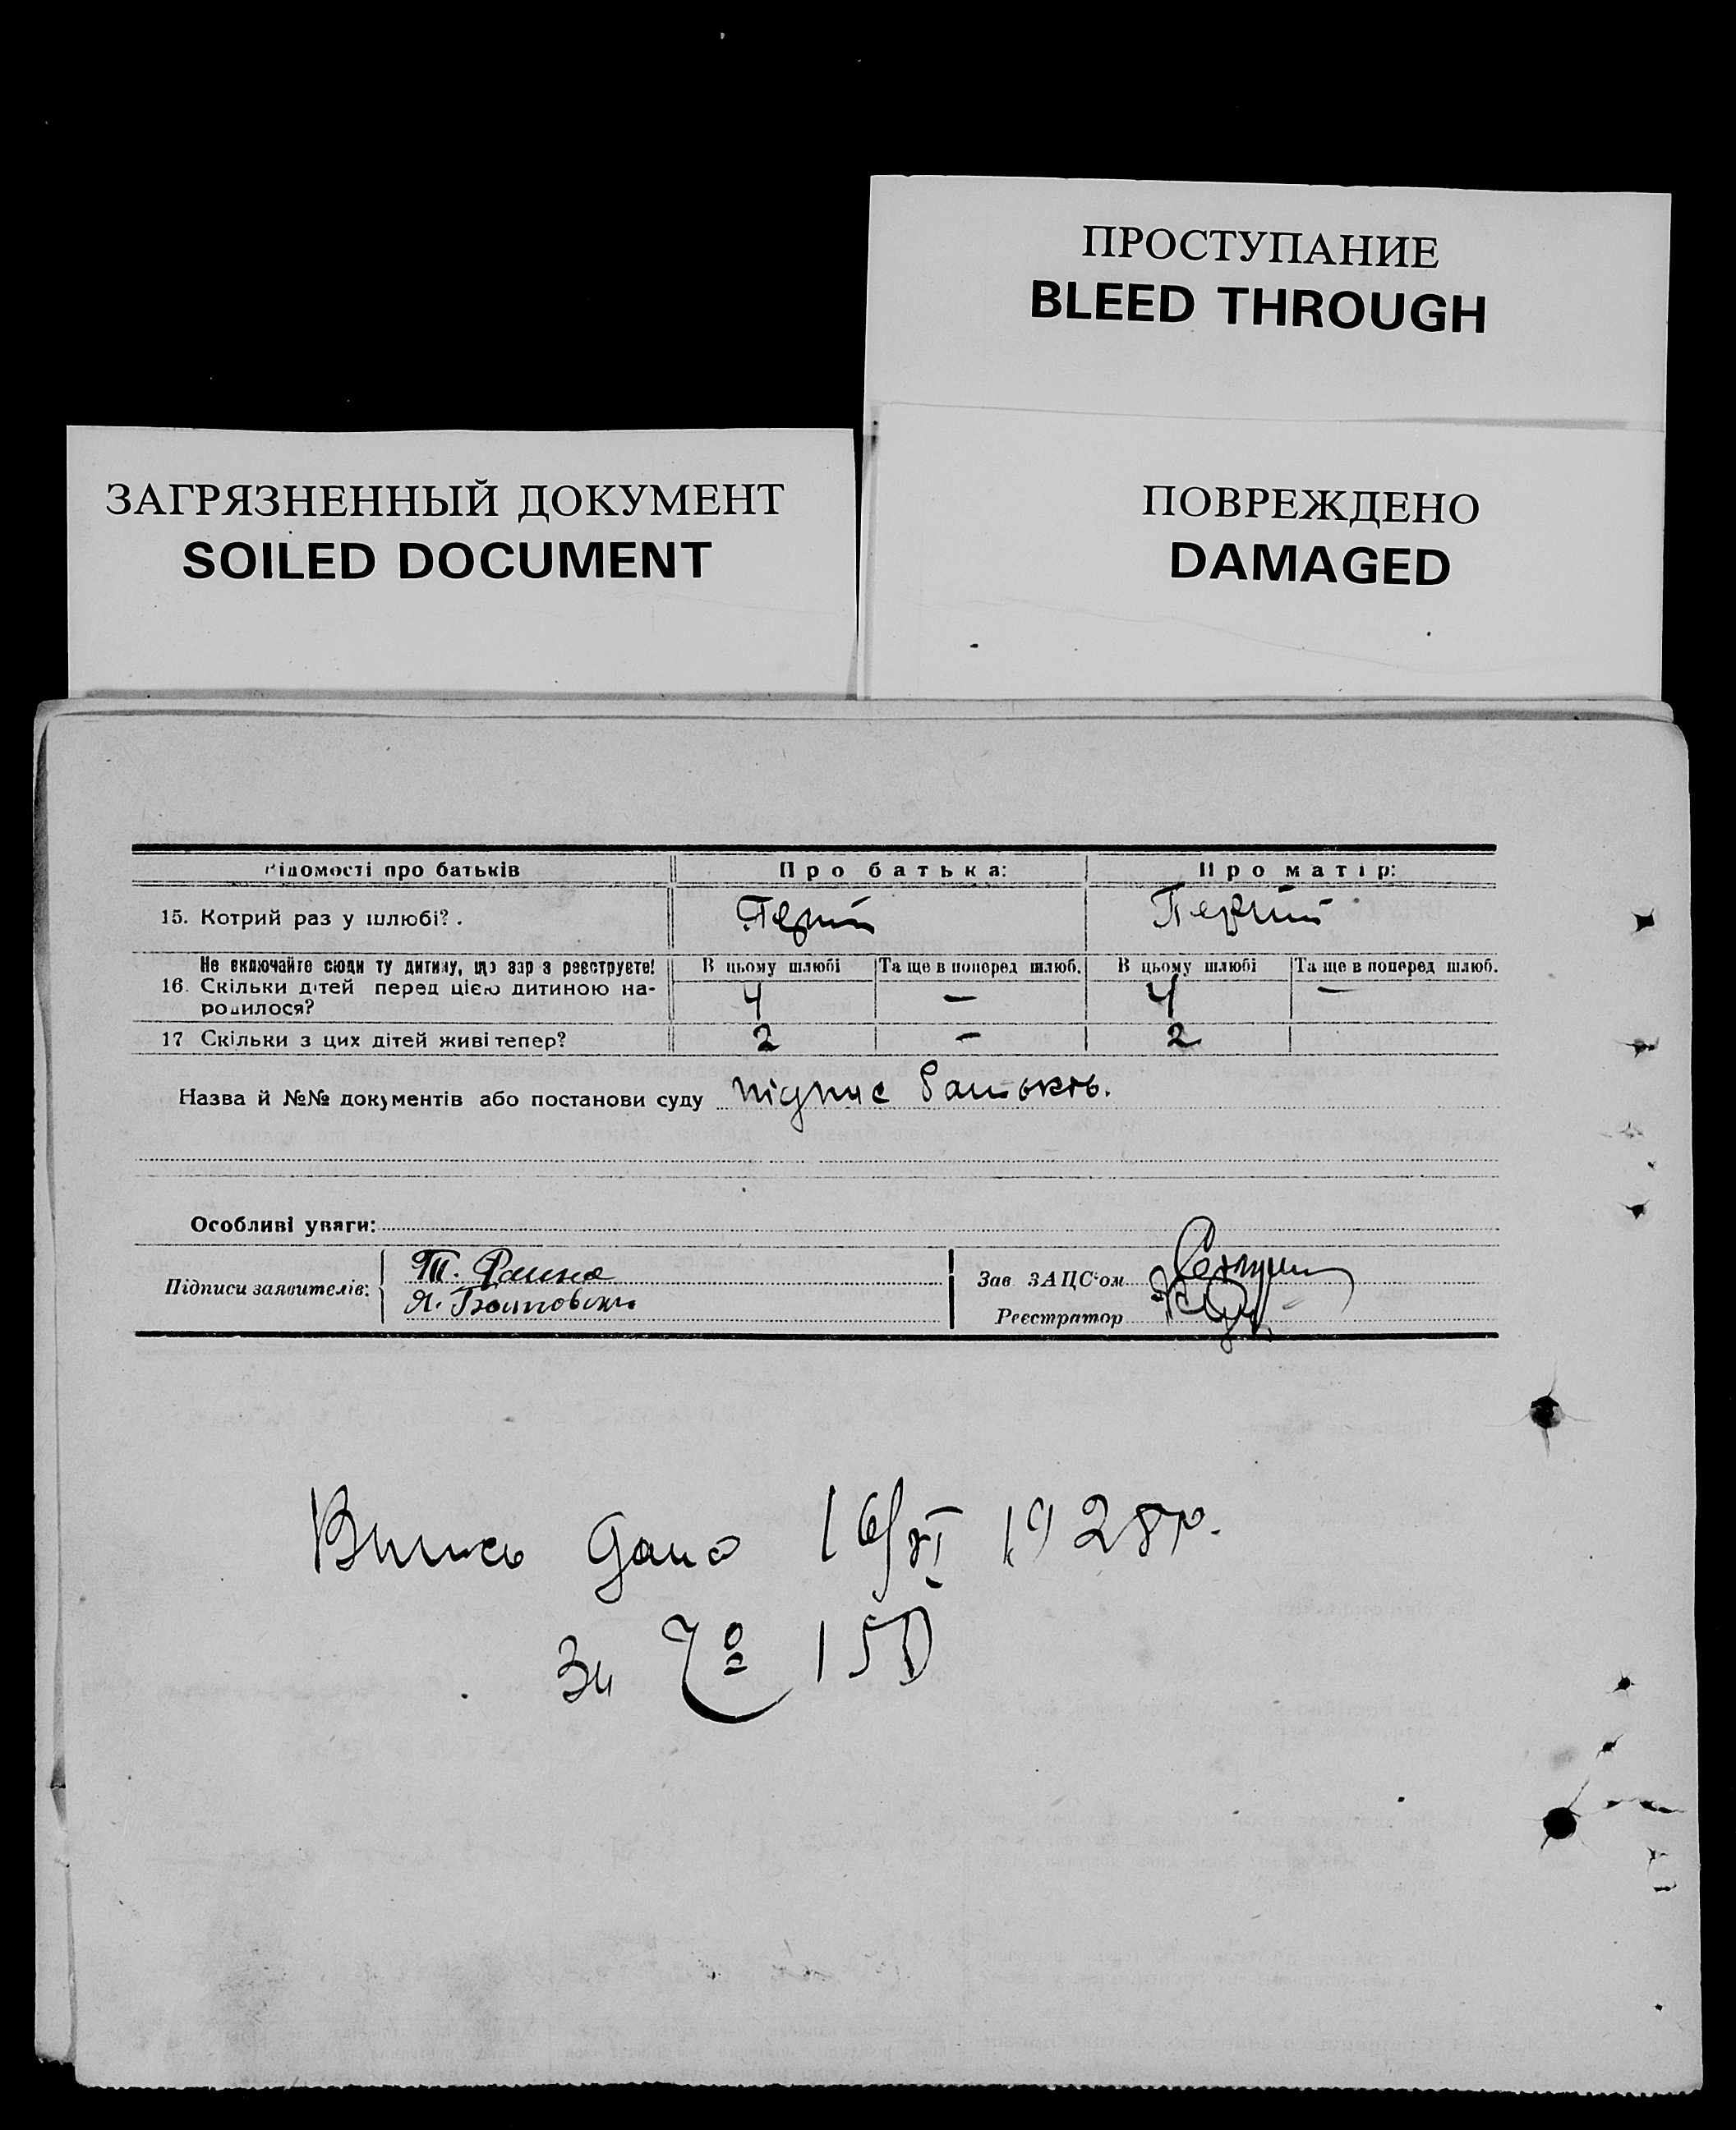 ПРОСТУПАНИЕ
BLEED THROUGH
ЗАГРЯЗНЕННЫЙ ДОКУМЕНТ
SOILED DOCUMENT
ПОВРЕЖДЕНО
DAMAGED
Відомості про батьків Про батька: Про матір:
15. Котрий раз у шлюбі?. Перший Перший
Не включайте сюди ту дитину, що зараз реєструєте! В цьому шлюбі Та ще в поперед шлюб. В цьому шлюбі Та ще в поперед шлюб.
16. Скільки дітей перед цією дитиною на- 4 — 4 —
родилося?
17 Скільки з цих дітей живі тепер? 2 — 2
Назва й №№ документів або постанови суду підпис батьків.
Особливі уваги:
Підписи заявителів:
Зав ЗАЦС'ом
Реєстратор
Випись дано 16/VI 1928 р.
За № 150